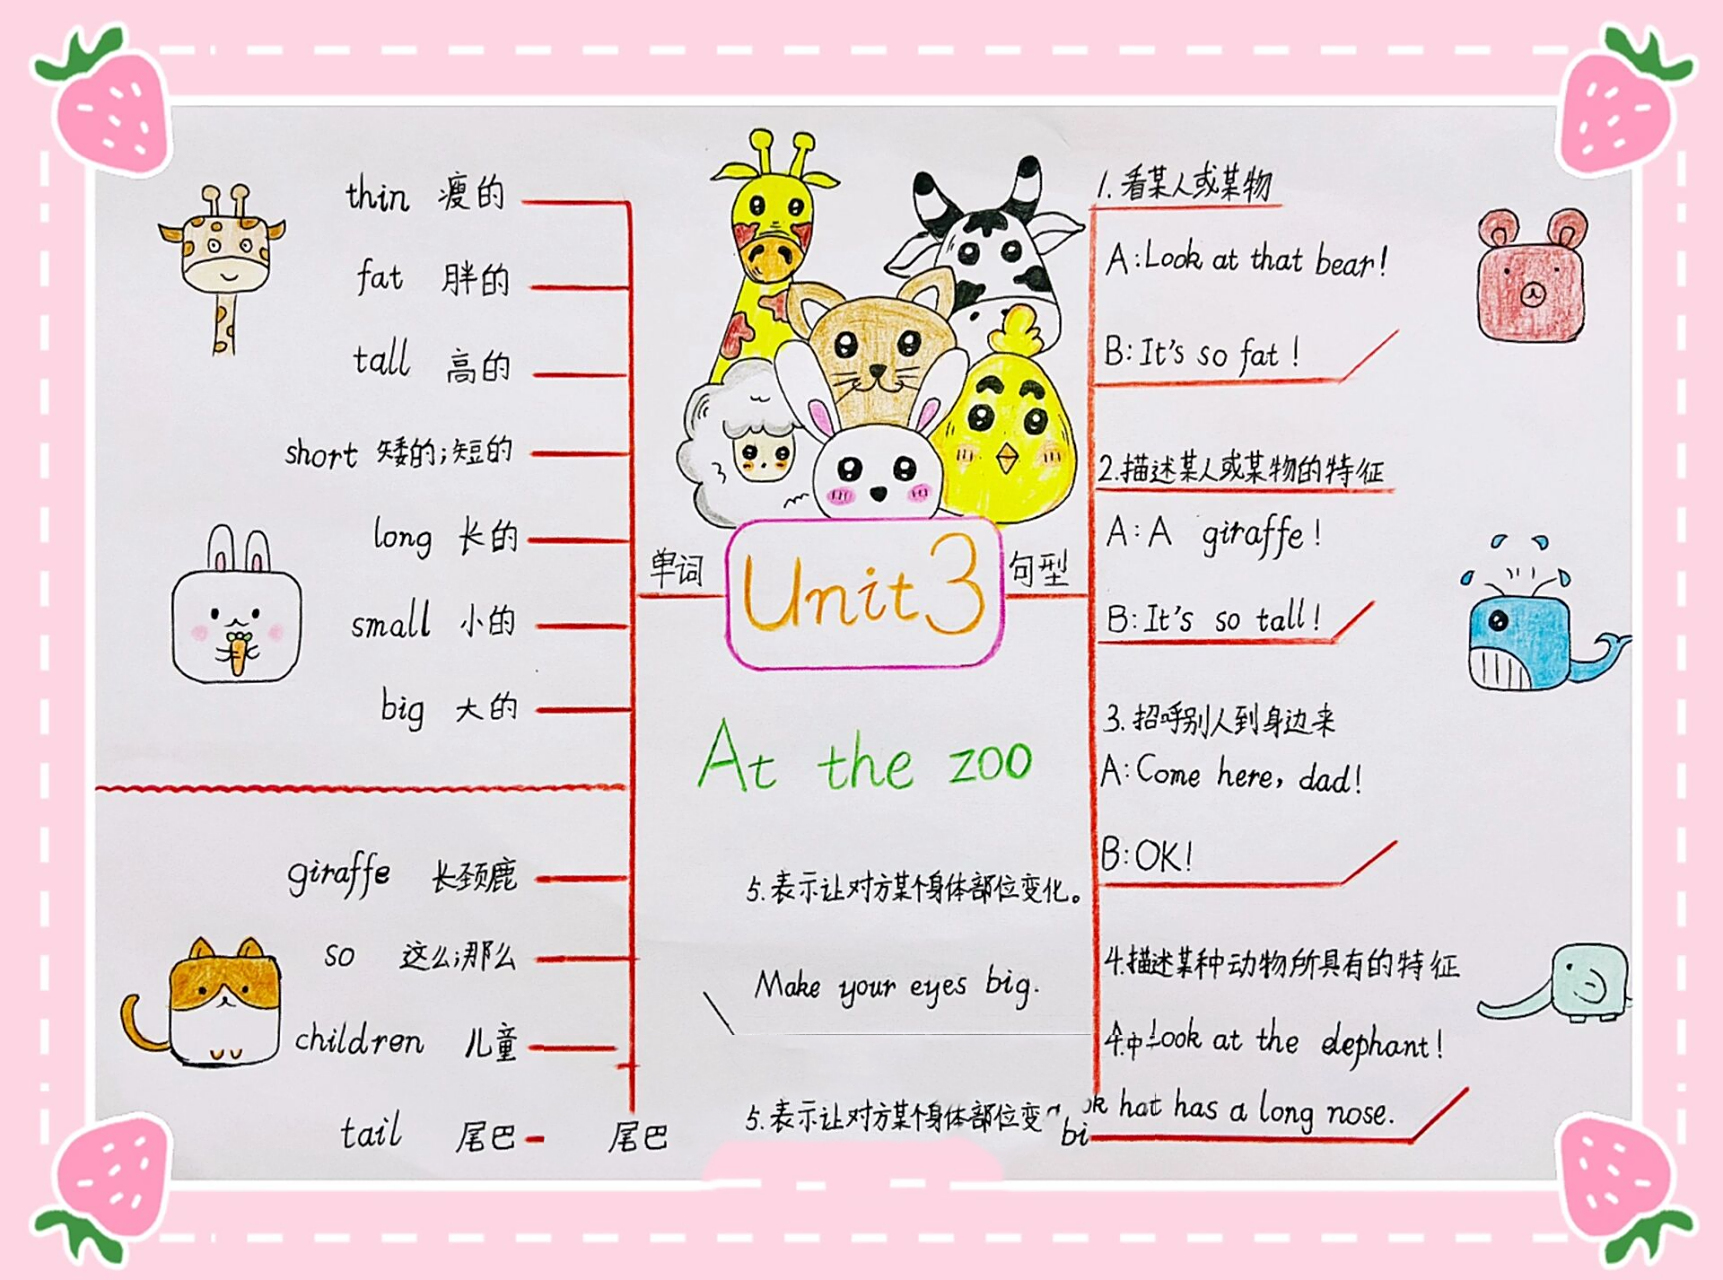 thin 瘦的
fat 胖的
tall 高的
short 矮的;短的
long 长的
small 小的
big 大的
giraffe 长颈鹿
so 这么;那么
children 儿童
tail 尾巴
尾巴
单词
Unit 3
句型
At the zoo
1. 看某人或某物
A: Look at that bear!
B: It's so fat!
2. 描述某人或某物的特征
A: A giraffe!
B: It's so tall!
3. 招呼别人到身边来
A: Come here, dad!
B: OK!
4. 描述某种动物所具有的特征
Look at the elephant!
hat has a long nose.
5. 表示让对方某个身体部位变化。
Make your eyes big.
5. 表示让对方某个身体部位变
bi